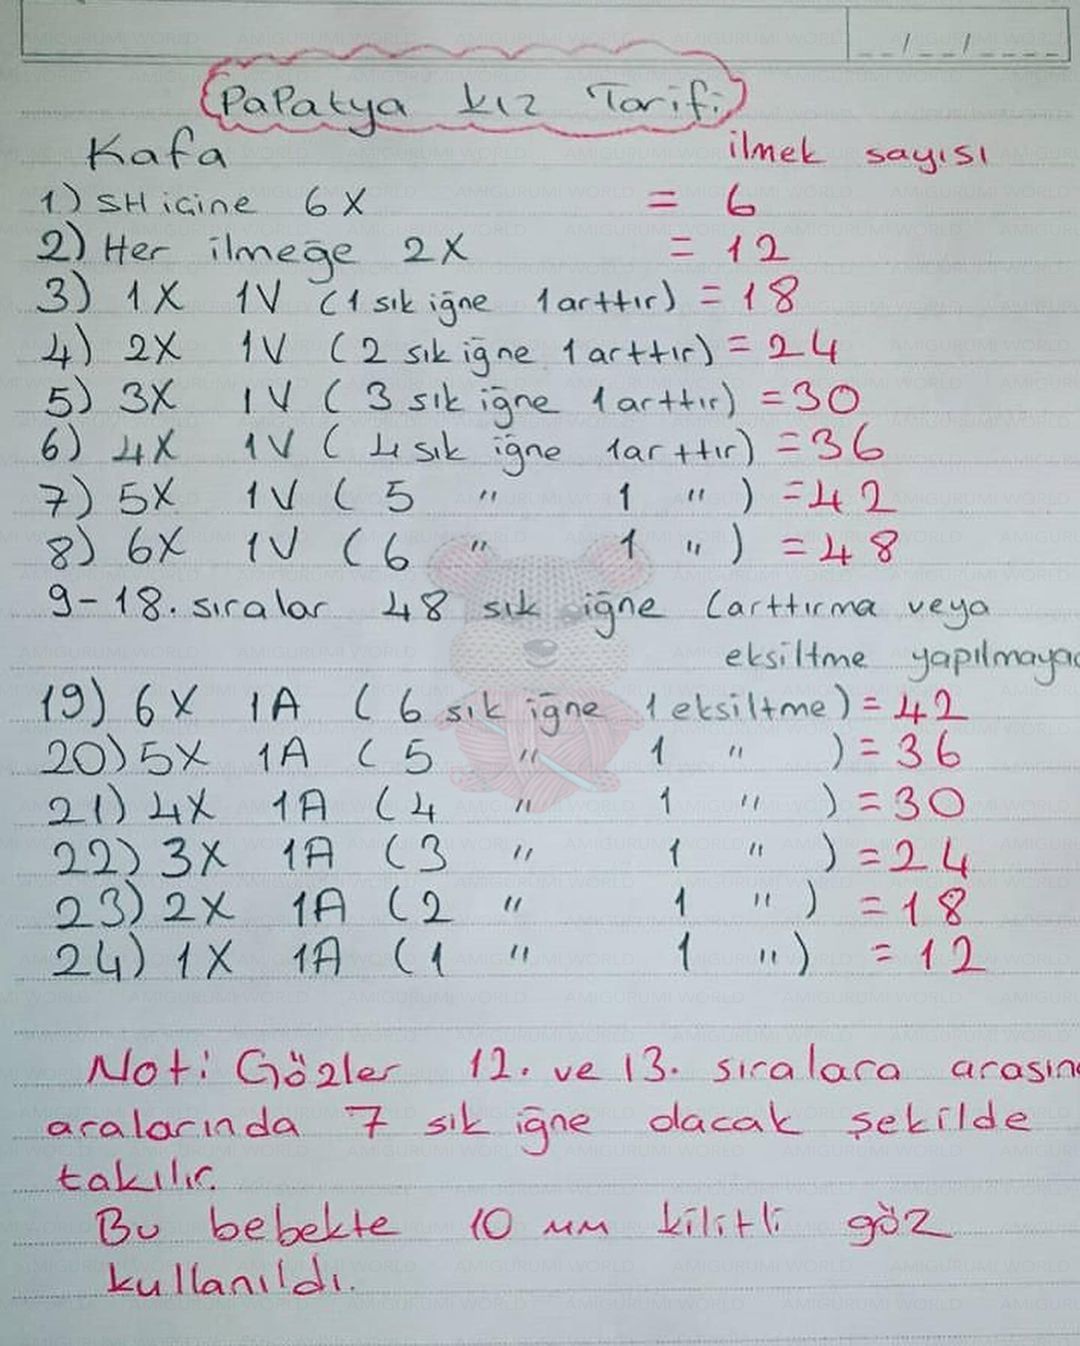 _ _ / _ _ / _ _ _ _
Papatya kız Tarifi
Kafa ilmek sayısı
1) SH içine 6X = 6
2) Her ilmeğe 2X = 12
3) 1X 1V (1 sık iğne 1arttır) = 18
4) 2X 1V (2 sık iğne 1arttır) = 24
5) 3X 1V (3 sık iğne 1arttır) = 30
6) 4X 1V (4 sık iğne 1arttır) = 36
7) 5X 1V (5 " 1 ") = 42
8) 6X 1V (6 " 1 ") = 48
9-18. sıralar 48 sık iğne (arttırma veya
eksiltme
19) 6X 1A (6 sık iğne 1 eksiltme) = 42
20) 5X 1A (5 " 1 ") = 36
21) 4X 1A (4 " 1 ") = 30
22) 3X 1A (3 " 1 ") = 24
23) 2X 1A (2 " 1 ") = 18
24) 1X 1A (1 " 1 ") = 12
Not: Gözler 12. ve 13. sıralara
aralarında 7 sık iğne olacak şekilde
takılır.
Bu bebekte 10 mm kilitli göz
kullanıldı.
AMIGURUMI WORLD